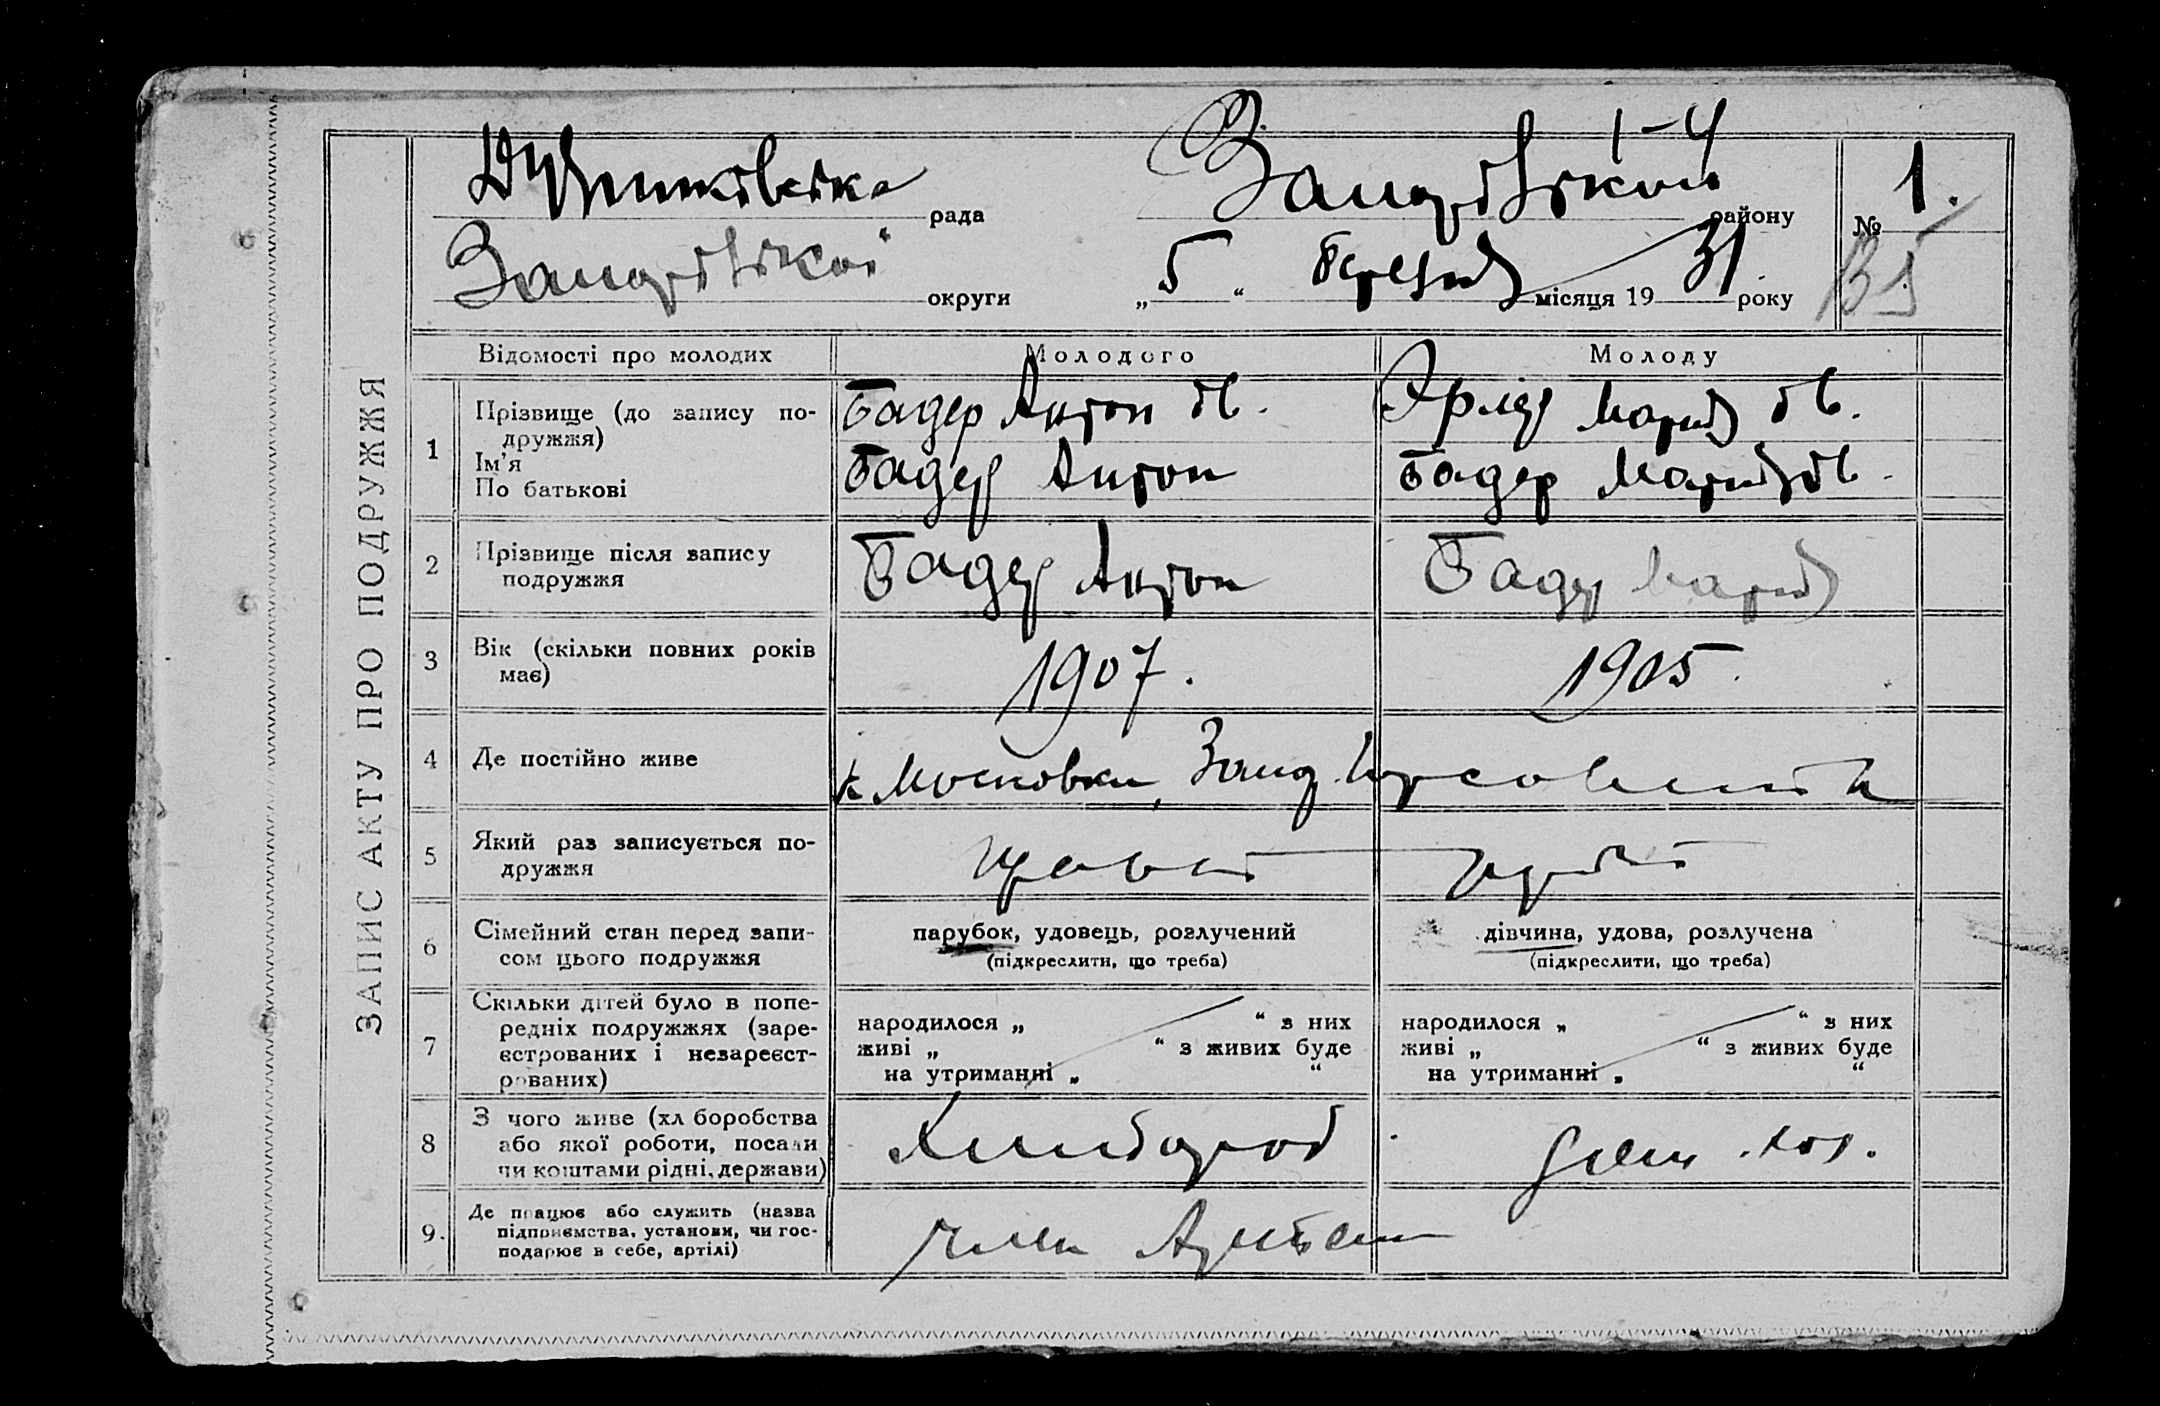 ЗАПИС АКТУ ПРО ПОДРУЖЖЯ
1-4
рада
району
№ 1.
округи
„ 5 “ березня місяця 19 31. року
Відомості про молодих
Молодого
Молоду
1
Прізвище (до запису по-
дружжя)
Ім'я
По батькові
Бадер Антон
Бадер Антон
Марія
Бадер Марія
2
Прізвище після запису
подружжя
Бадер Антон
Бадер Марія
3
Вік (скільки повних років
має)
1907.
1905.
4
Де постійно живе
Московка, Запор.
5
Який раз записується по-
дружжя
6
Сімейний стан перед запи-
сом цього подружжя
парубок, удовець, розлучений
(підкреслити, що треба)
дівчина, удова, розлучена
(підкреслити, що треба)
7
Скільки дітей було в попе-
редніх подружжях (заре-
єстрованих і незареєст-
рованих)
народилося „ “ з них
живі „ “ з живих буде
на утриманні „ “
народилося „ “ з них
живі „ “ з живих буде
на утриманні „ “
8
З чого живе (хліборобства
або якої роботи, посади
чи коштами рідні, держави)
Хлибороб
9.
Де працює або служить (назва
підприємства, установи, чи гос-
подарює в себе, артілі)
член Артели